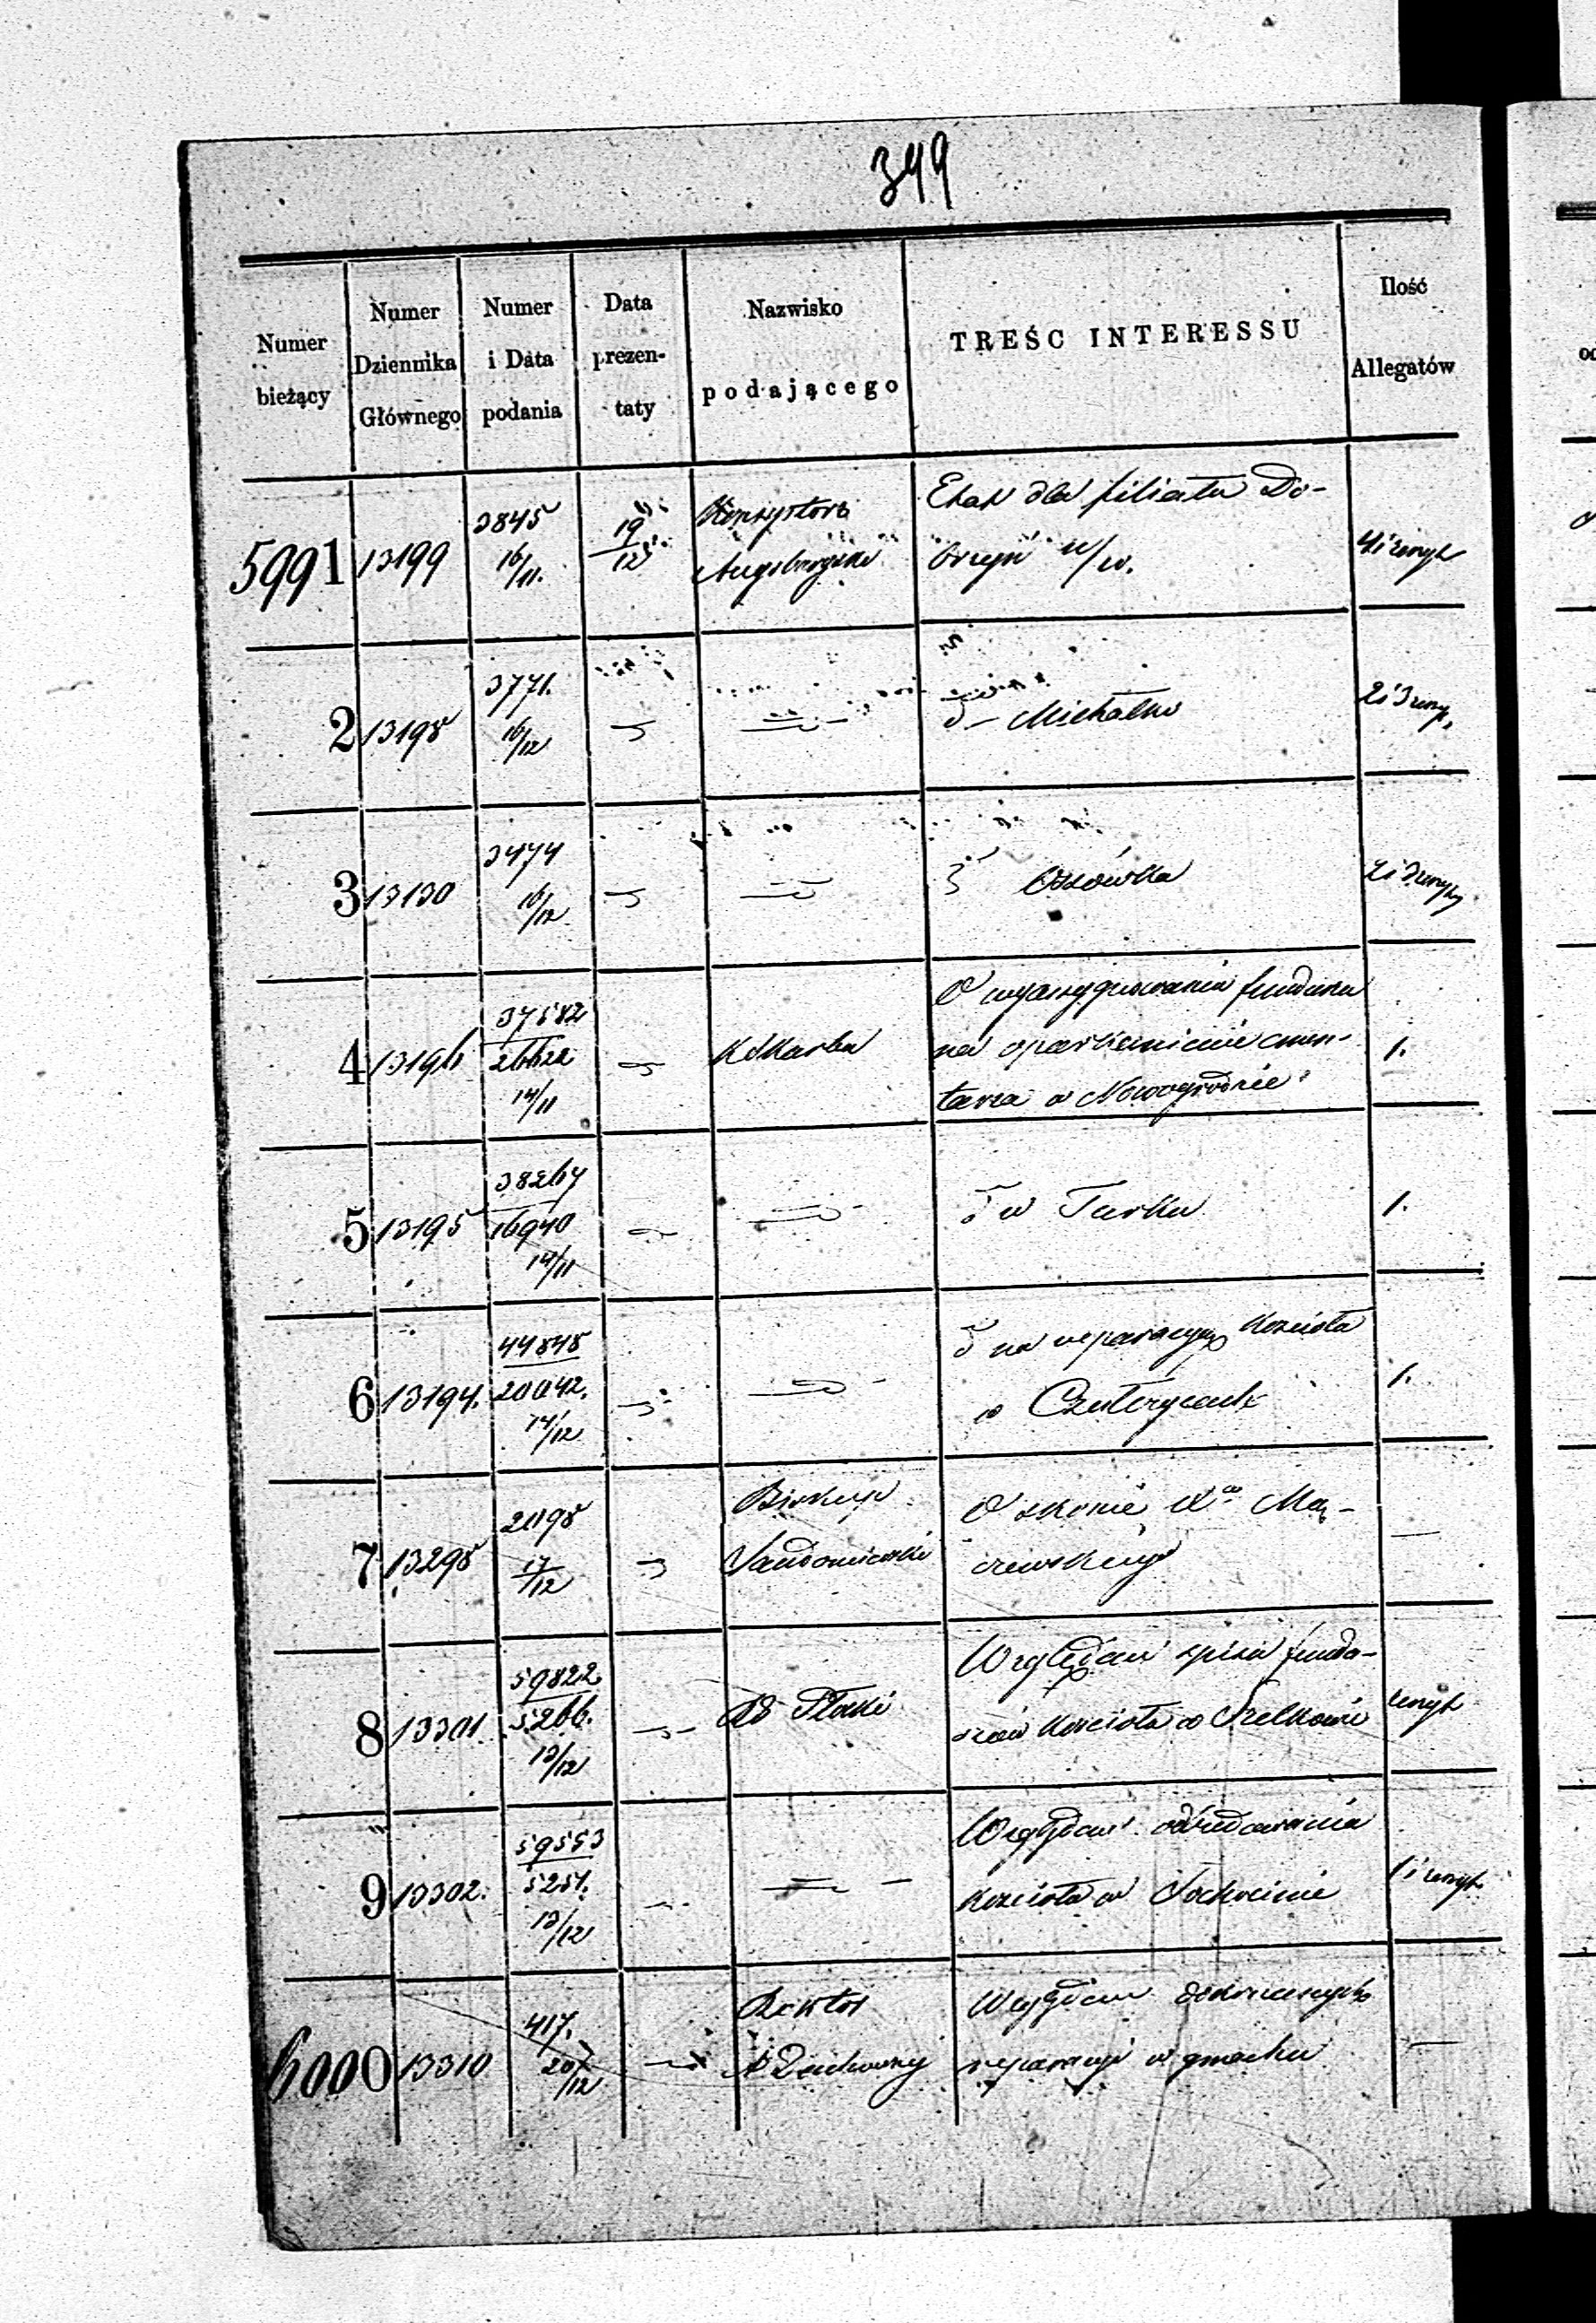 349
Numer bieżący
Numer Dziennika Głównego
Numer i Data podania
Data prezen-taty
Nazwisko podającego
TREŚC INTERESSU
Ilość Allegatów
5991 13199 3845 16/11. 19/12 Konsystorz Augsburgski
Etat dla filiału Do-
brzyń n/w.
2 13198 3771. 16/12
d – Michałki
3 13130 3474 16/12
Ossówka
4 13196 37582 26622 14/11 K. Skarbu
O wyassygnowanie funduszu
na oparkanienie cmen-
tarza w Nowogrodzie
1.
5 13195 38267 16940 14/11
d w Turku
1.
6 13194. 44848 20042. 14/12
d na reparacyę Kościoła
w Czułczycach
1.
7 13298 2098 17/12 Biskup Sandomierski
O zkonie Xa Ma-
czewskiego
8 13301 59822 5266. 13/12 Rd Płocki
Względem spisu fundu-
szów Kościoła w Szelkowie
9 13302. 59553 5251. 13/12
Względem odbudowania
Kościoła w Sochocinie
6000 13310 417. 20/12 Rektor A Duchowny
Względem dokonanych
reparacyi w gmachu